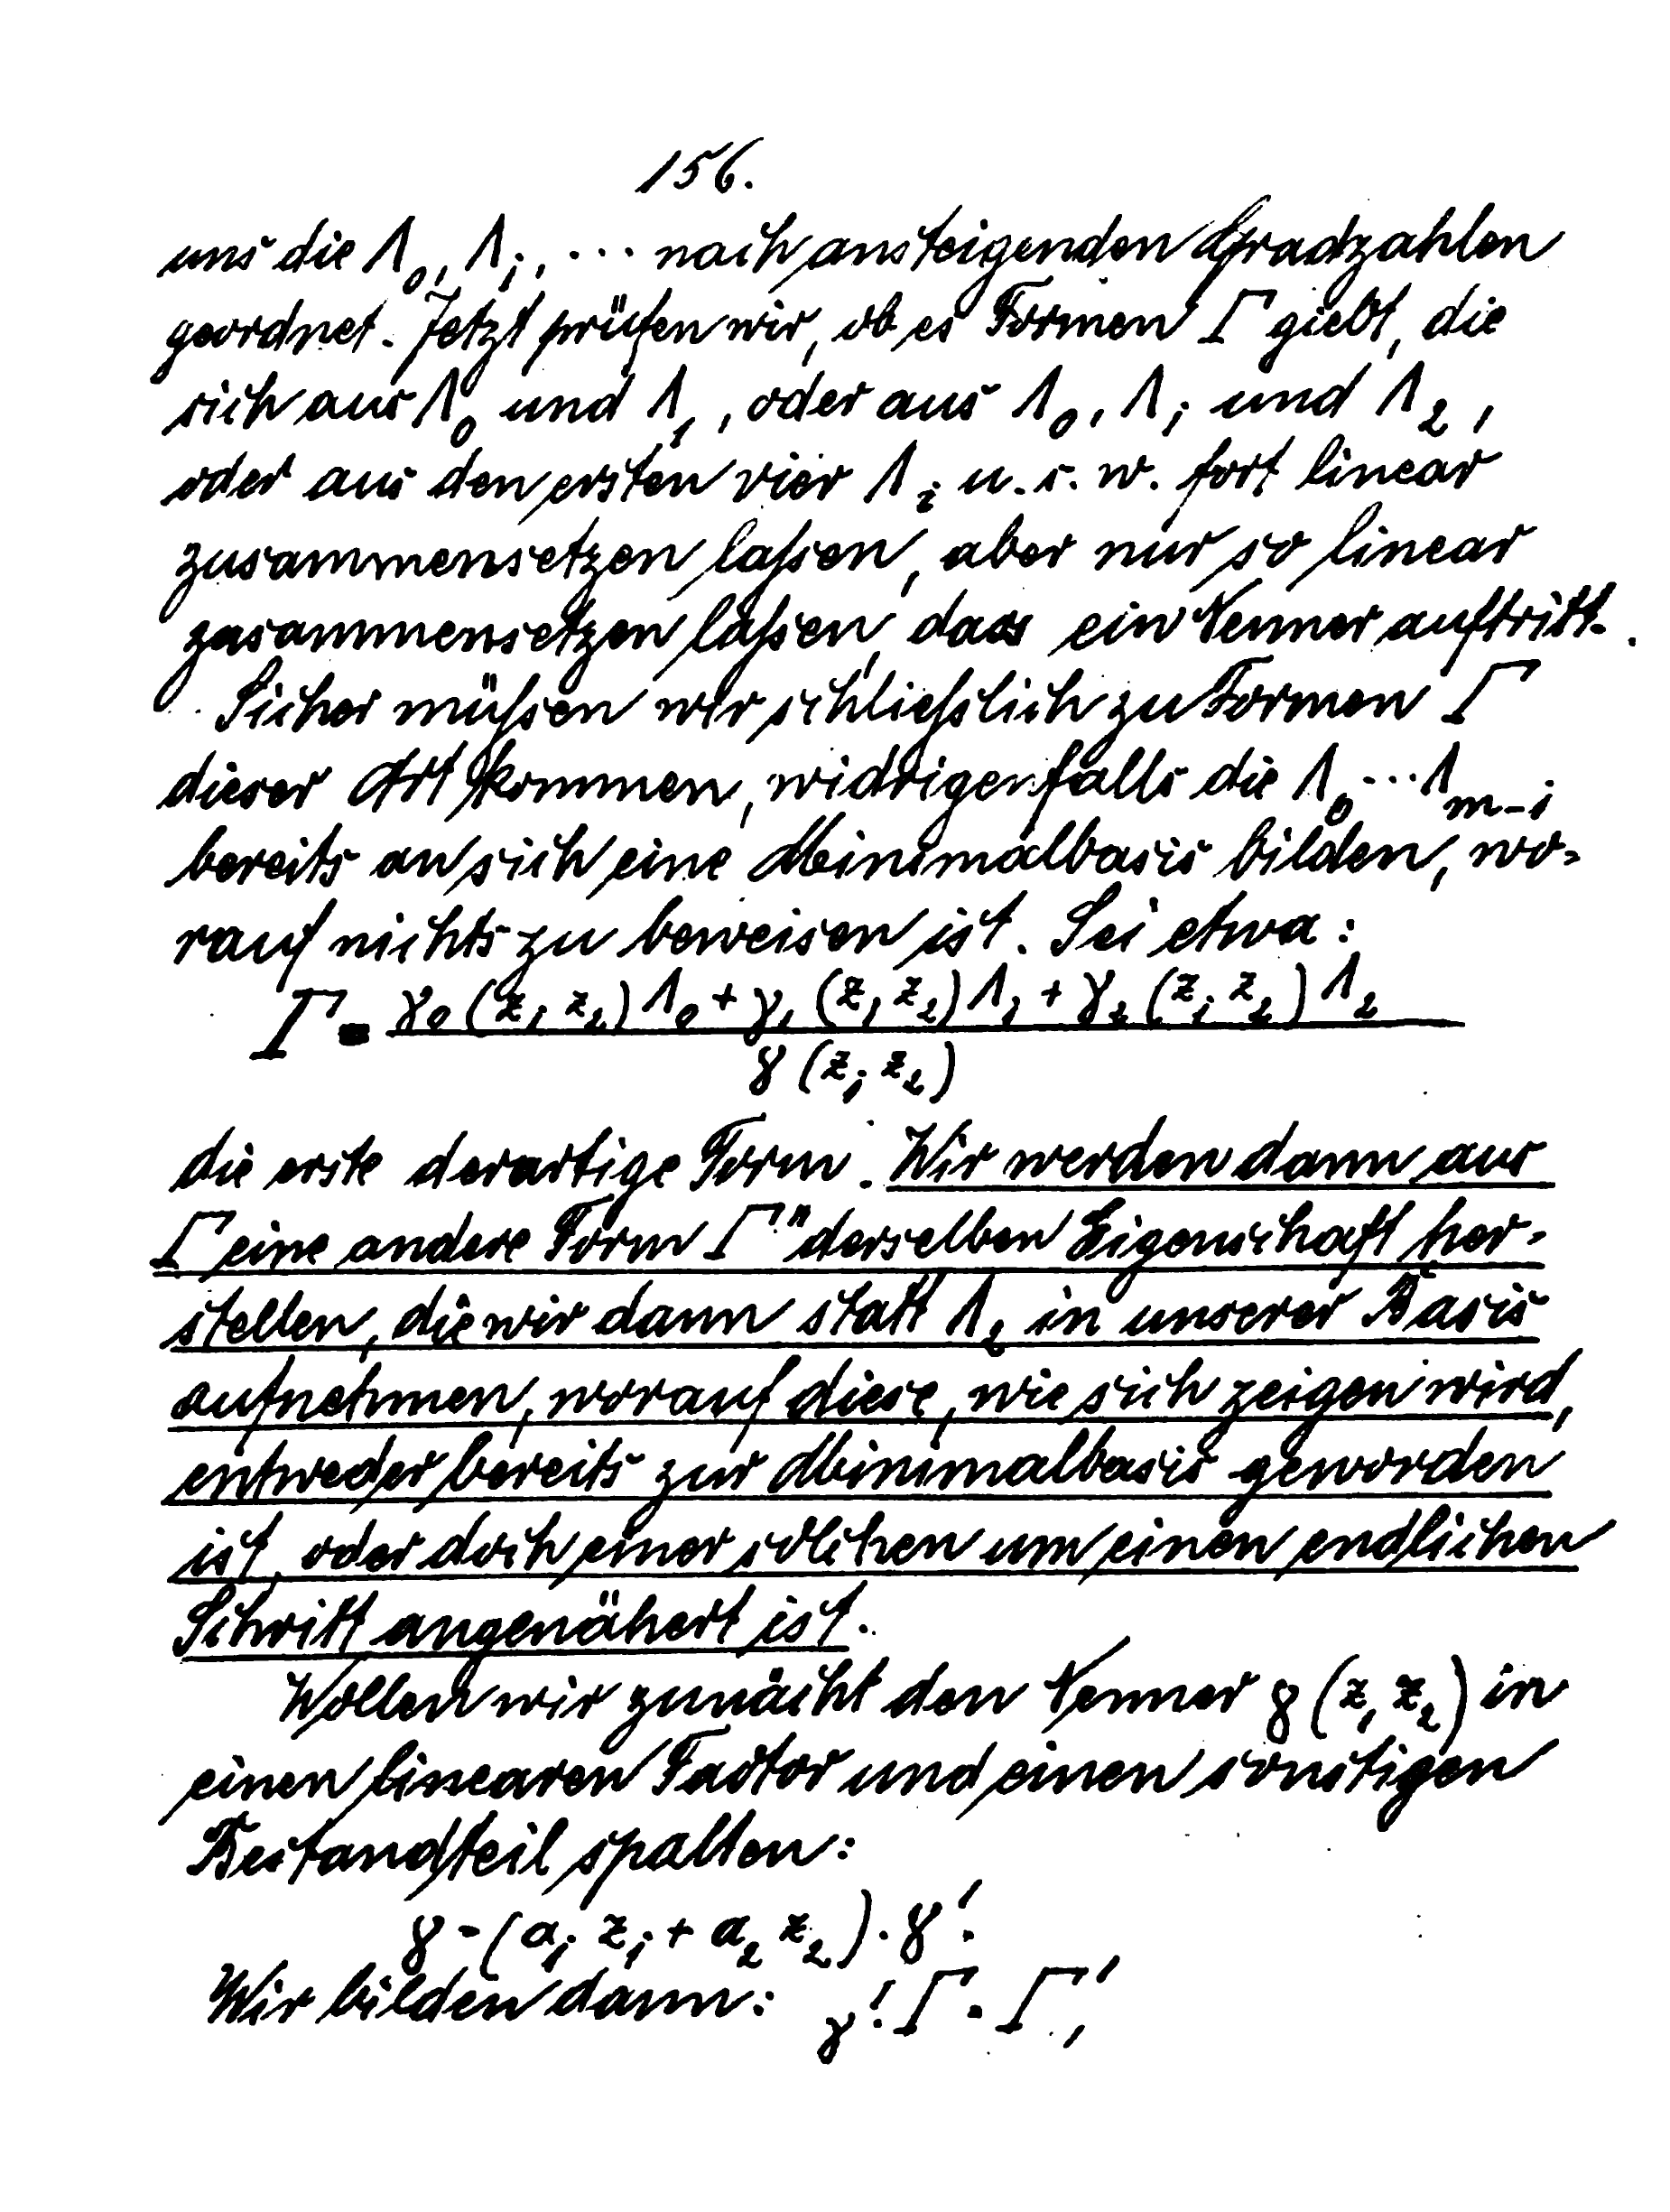 156.
uns die Λ₀, Λ₁, ... nach ansteigenden Gradzahlen
geordnet. Jetzt prüfen wir, ob es Formen Γ giebt, die
sich aus Λ₀ und Λ₁, oder aus Λ₀, Λ₁ und Λ₂,
oder aus den ersten vier Λᵢ u. s. w. fort linear
zusammensetzen laßen, aber nur so linear
zusammensetzen laßen, dass ein Nenner auftritt.
Sicher müßen wir schließlich zu Formen Γ
dieser Art kommen, widrigenfalls die Λ₀ ... Λₘ₋₁
bereits an sich eine Minimalbasis bilden, wo-
rauf nichts zu beweisen ist. Sei etwa:
Γ = γ₀(z₁ z₂)Λ₀ + γ₁(z₁ z₂)Λ₁ + γ₂(z₁ z₂)Λ₂
γ(z₁ z₂)
die erste derartige Form. Wir werden dann aus
Γ eine andere Form Γ" derselben Eigenschaft her-
stellen, die wir dann statt Λ₂ in unserer Basis
aufnehmen, worauf diese, wie sich zeigen wird,
entweder bereits zur Minimalbasis geworden
ist, oder doch einer solchen um einen endlichen
Schritt angenähert ist.
Wollen wir zunächt den Nenner γ(z₁ z₂) in
einen linearen Factor und einen sonstigen
Bestandteil spalten:
γ = (a₁ z₁ + a₂ z₂) . γ'.
Wir bilden dann: γ'. Γ = Γ',